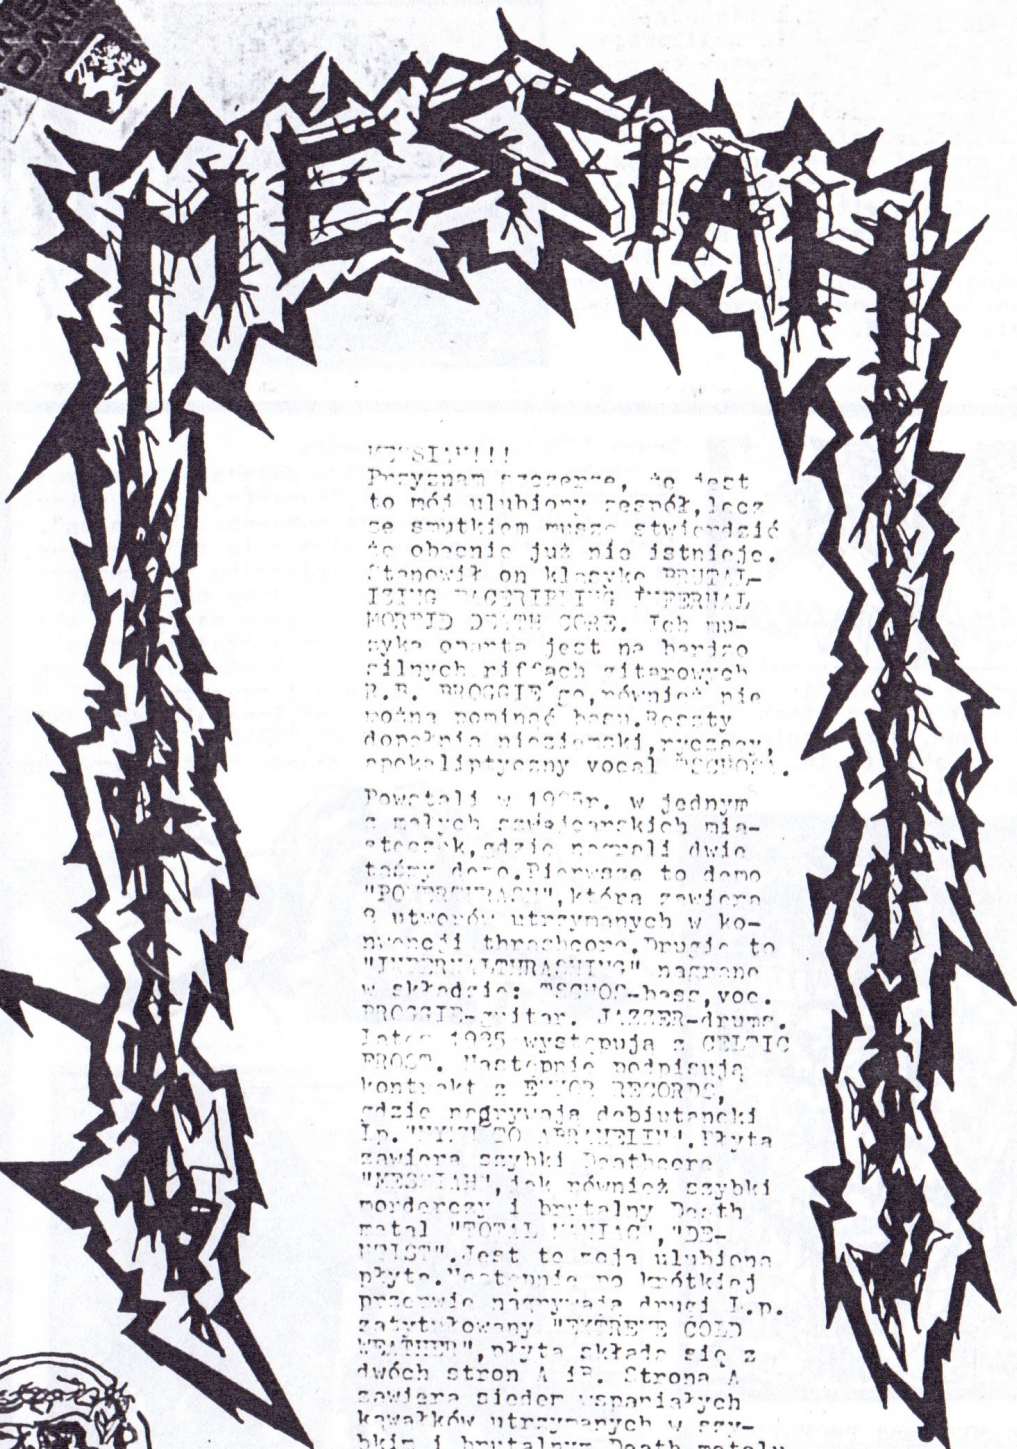 MESSIAH
MESSIAH!!!
Przyznam szczerze, że jest
to mój ulubiony zespół,lecz
ze smutkiem muszę stwierdzić
że obecnie już nie istnieje.
Stanowił on klasykę BRUTAL-
IZING INFERNAL
MORBID DEATH CORE. Ich mu-
zyka oparta jest na bardzo
silnych riffach gitarowych
R.B. BROGGIE'go,również nie
można pominąć basu.Reszty
dopełnia nieziemski,ryczący,
apokaliptyczny vocal TSCHOSA.
Powstali w 198 r. w jednym
z małych szwajcarskich mia-
steczek,gdzie nagrali dwie
taśmy demo.Pierwsze to demo
"POWERTHRASH",która zawiera
utworów utrzymanych w ko-
nwencji thrashcore.Drugie to
"INFERNALTHRASHING" nagrane
w składzie: TSCHOS-bass,voc.
BROGGIE-guitar. JAZZER-drums.
1986 występują z CELTIC
FROST. Następnie podpisują
kontrakt z RECORDS,
gdzie nagrywają debiutancki
Lp."HYMN TO ABRAMELIN".Płyta
zawiera szybki Deathcore
"MESSIAH",jak również szybki
morderczy i brutalny Death
metal "TOTAL MANIAC","DE-
Jest to moja ulubiona
płyta.Następnie po krótkiej
przerwie nagrywają drugi L.p.
zatytułowany "EXTREME COLD
WEATHER",płyta składa się z
dwóch stron A iB. Strona A
zawiera siedem wspaniałych
kawałków utrzymanych w szy-
bkim i brutalnym Death metalu